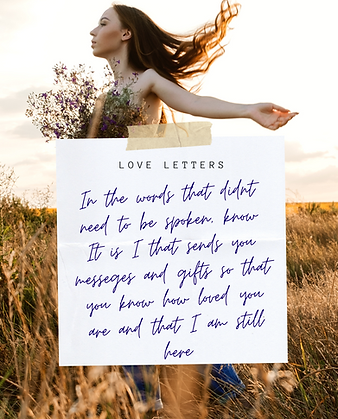 LOVE LETTERS
In the words that didnt
need to be spoken. know
It is I that sends you
messeges and gifts so that
you know how loved you
are and that I am still
here